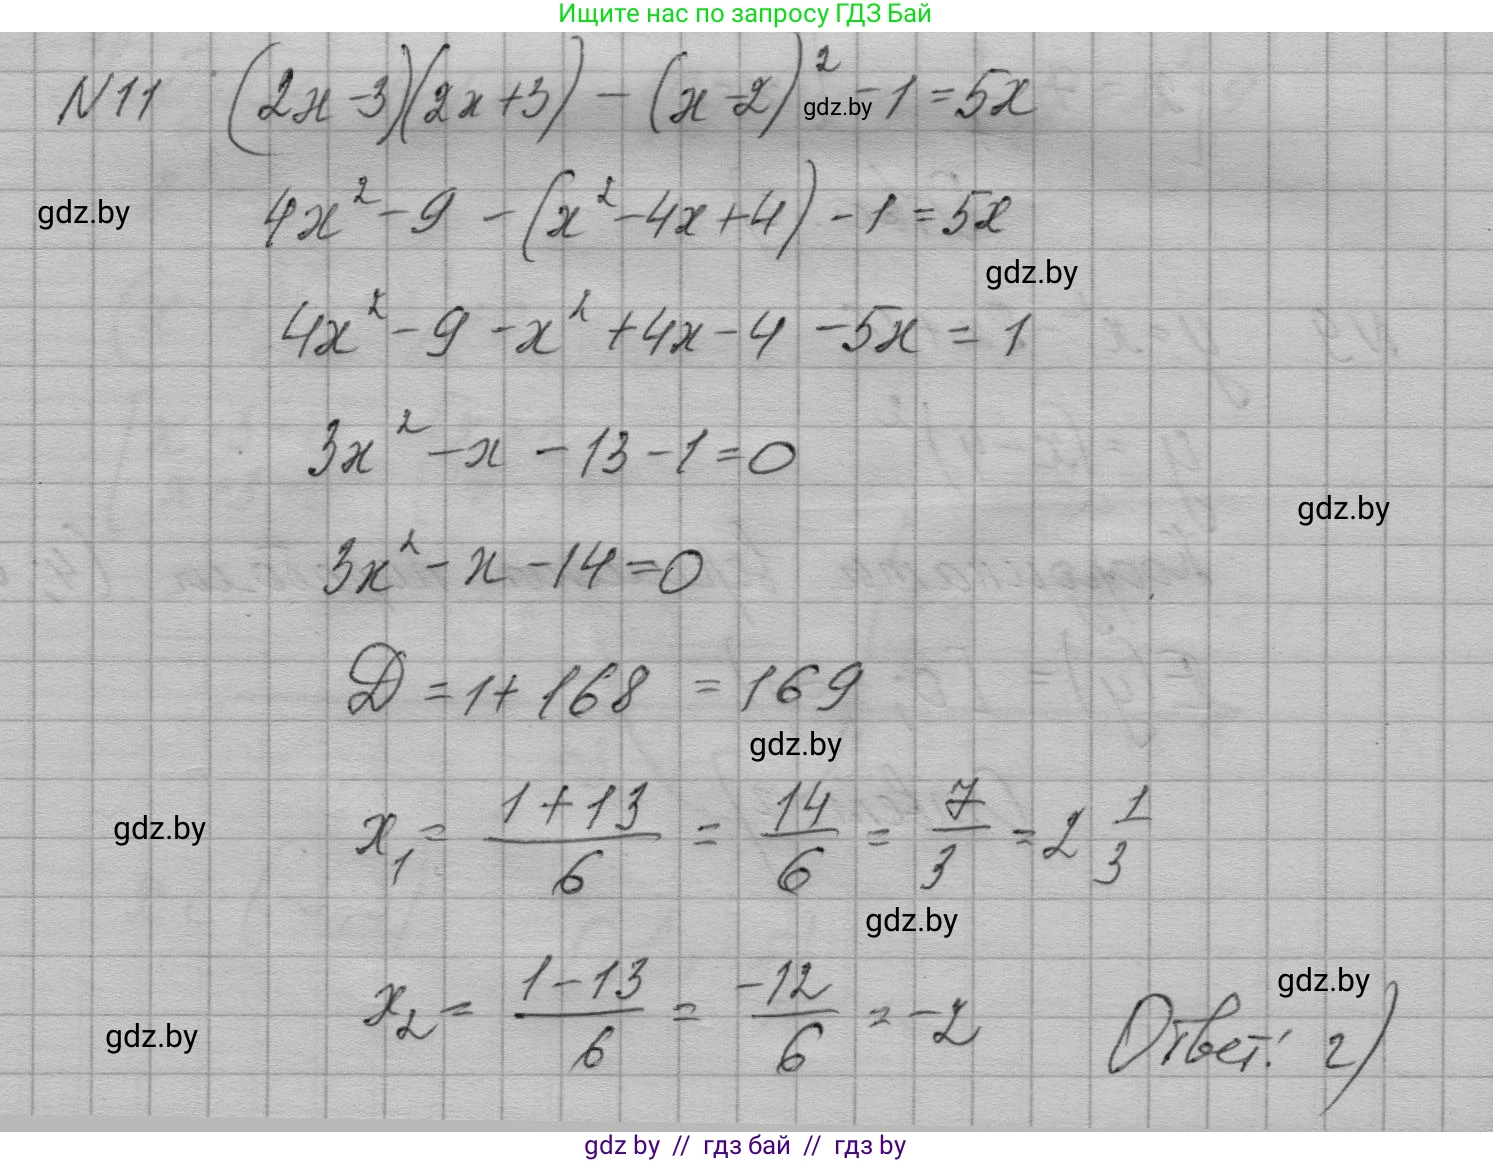 Ищите нас по запросу ГДЗ Бай
N11 (2x-3)(2x+3) - (x-2)² - 1 = 5x
gdz.by
gdz.by
4x² - 9 - (x² - 4x + 4) - 1 = 5x
gdz.by
4x² - 9 - x² + 4x - 4 - 5x = 1
3x² - x - 13 - 1 = 0
gdz.by
3x² - x - 14 = 0
D = 1 + 168 = 169
gdz.by
x₁ = (1+13)/6 = 14/6 = 7/3 = 2 1/3
gdz.by
gdz.by
x₂ = (1-13)/6 = -12/6 = -2
gdz.by
gdz.by
Ответ: г)
gdz by // гдз бай // гдз by